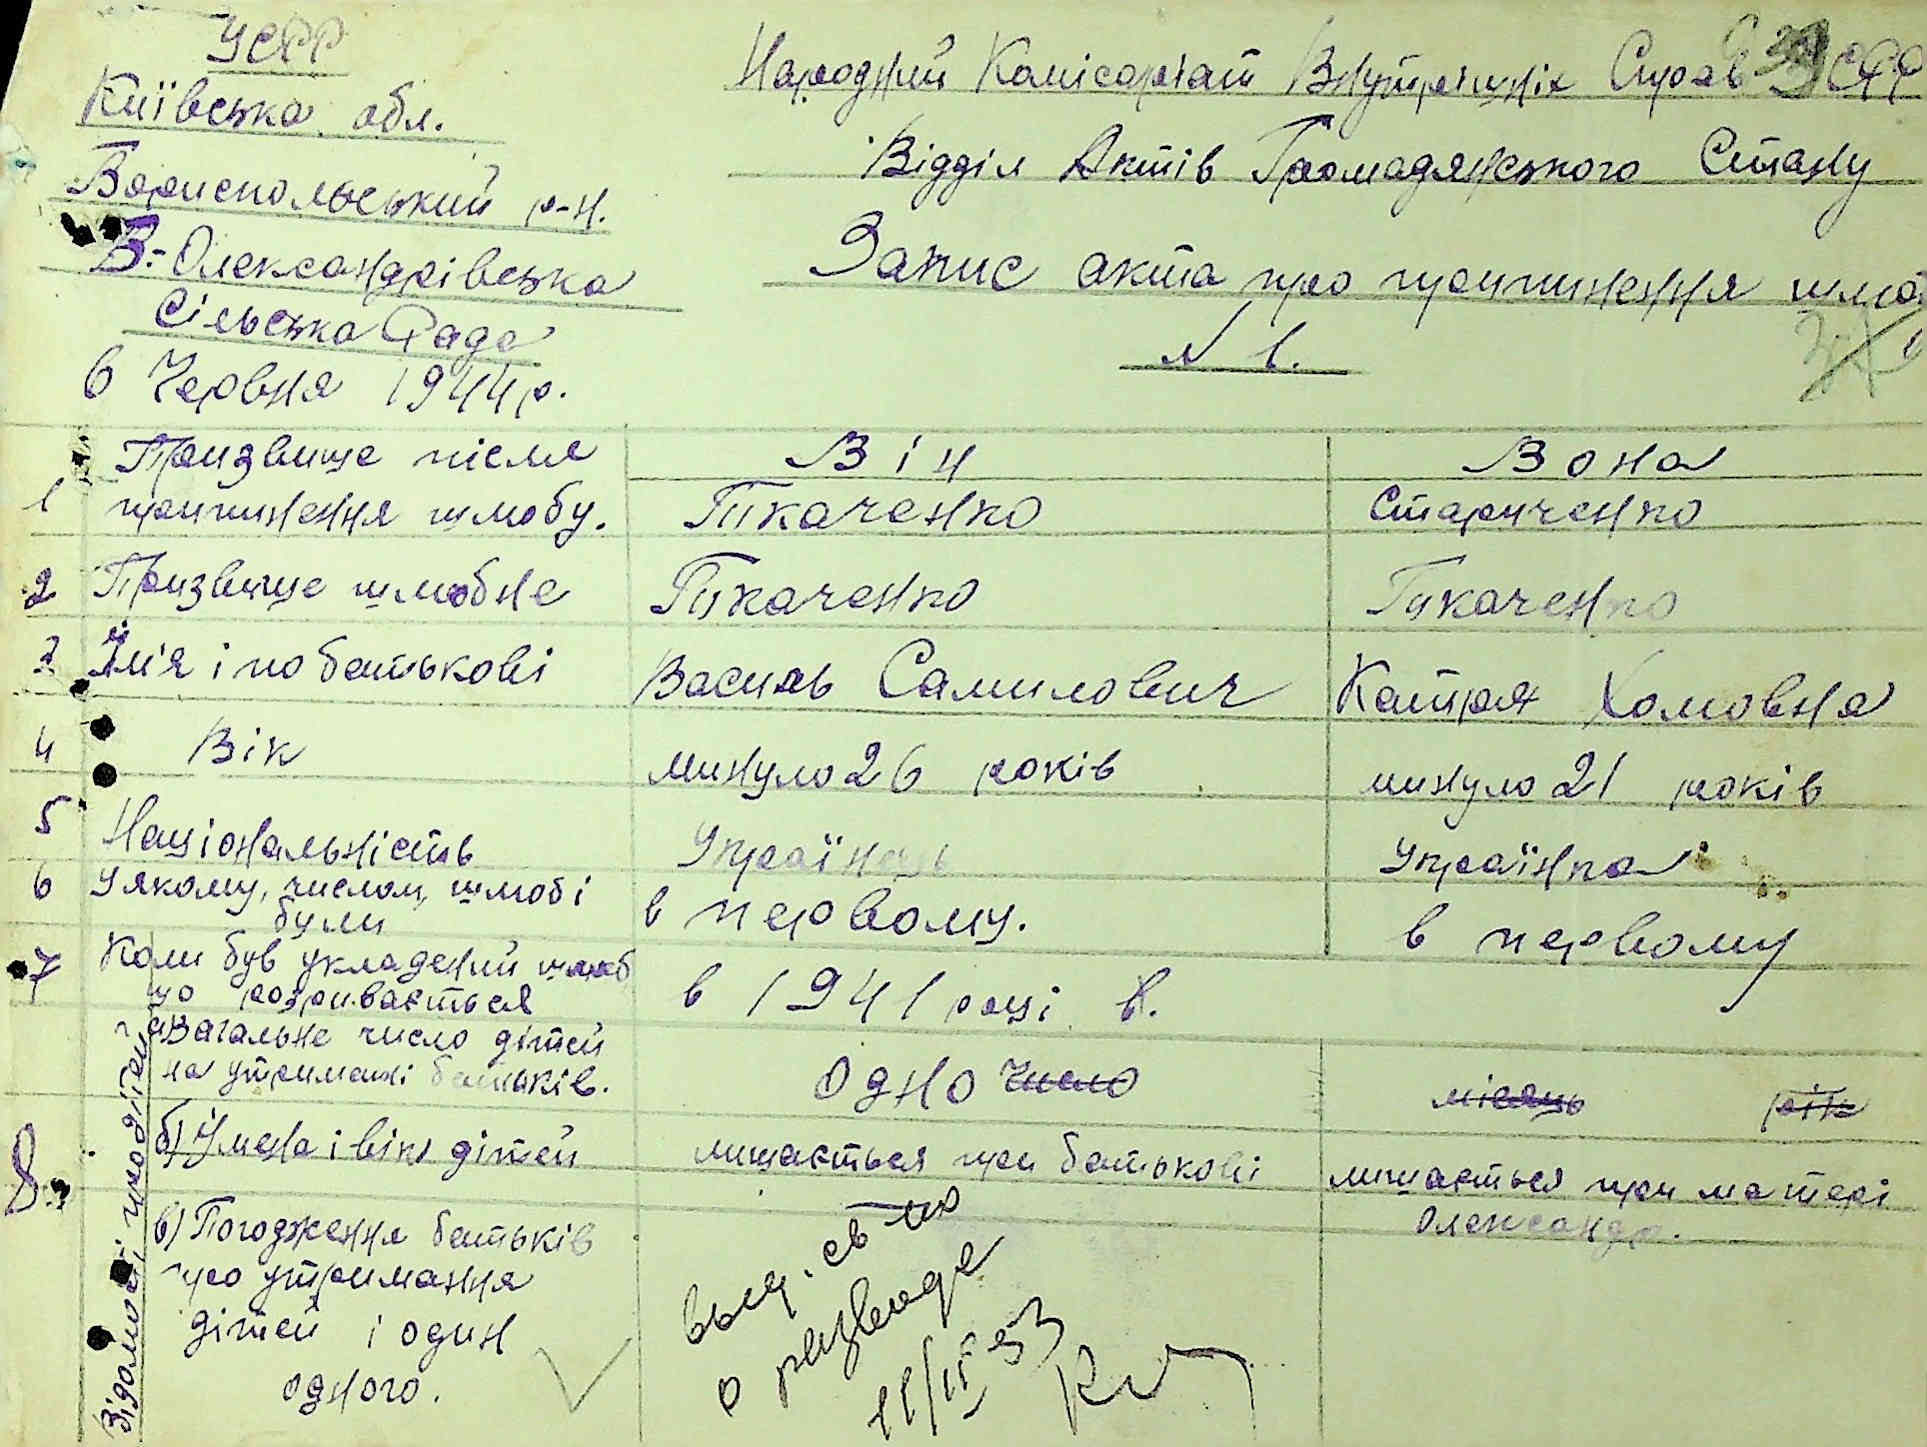 УСРР
Київська обл.
Бориспольський р-н.
В.-Олександрівська
Сільська Рада
6 Червня 1944 р.
Народній Комісаріат Внутрішніх Справ УСРР
Відділ Актів Громадянського Стану
Запис акта про припинення шлюбу
N 1.
Він
Вона
1 Призвище після припинення шлюбу.
Ткаченко
Старченко
2 Призвище шлюбне
Ткаченко
Ткаченко
3 Ім'я і по батькові
Василь Самилович
Катря Хомовна
4 Вік
минуло 26 років
минуло 21 років
5 Національність
Українець
Українка
6 У якому, числом, шлюбі були
в первому.
в первому
7 Коли був укладений шлюб що розривається
в 1941 році
8 Відомості про дітей
а) Загальне число дітей на утримані батьків.
одно число
місяць рік
б) Імена і вік дітей
лишається при батькові
лишається при матері
Олександр.
в) Погодження батьків про утримання дітей і один одного.
выд. св-во
о разводе
11/IX 53